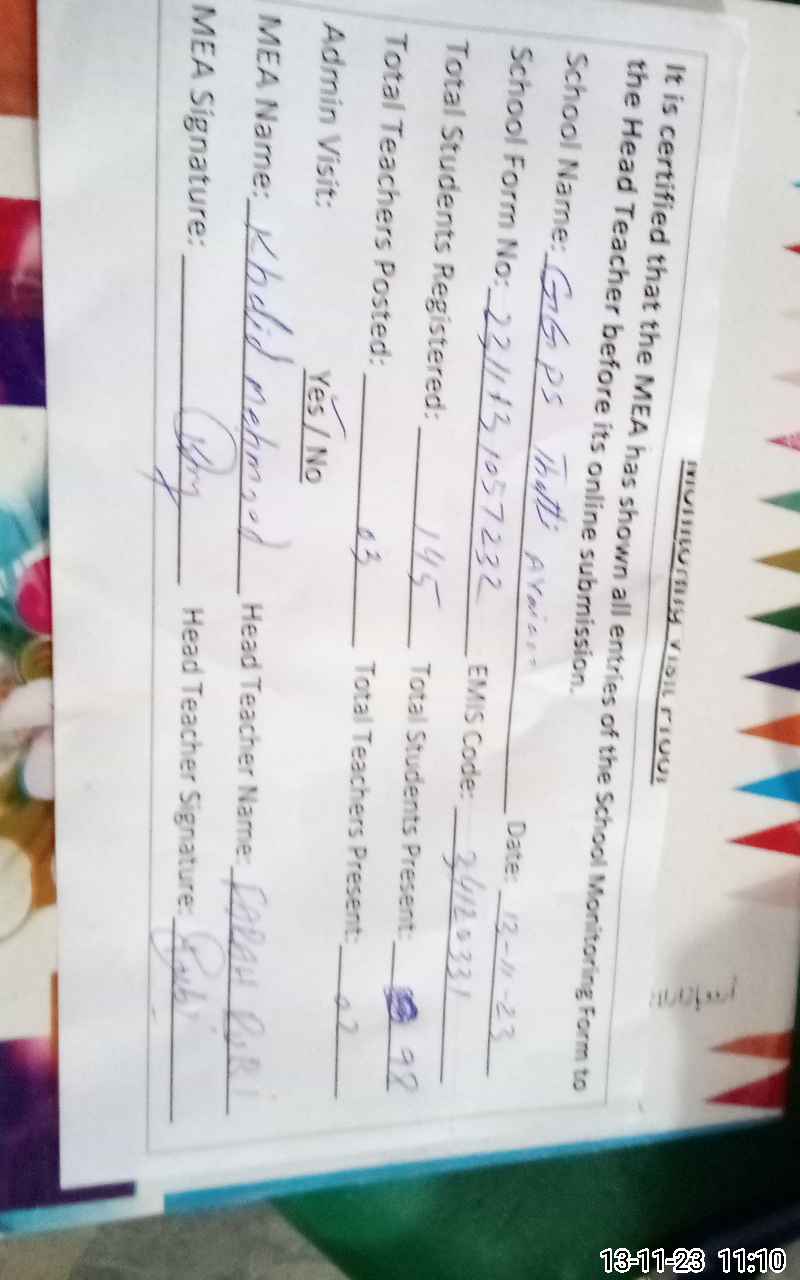 Monitoring Visit Proof
It is certified that the MEA has shown all entries of the School Monitoring Form to
the Head Teacher before its online submission.
School Name: GGPS Thatti Date: 13-11-23
School Form No: 2211131057232 EMIS Code: 34120331
Total Students Registered: 145 Total Students Present: 98
Total Teachers Posted: 03 Total Teachers Present: 02
Admin Visit: Yes / No
MEA Name: Khalid Mehmood Head Teacher Name: FARAH
MEA Signature: Head Teacher Signature:
13-11-23 11:10